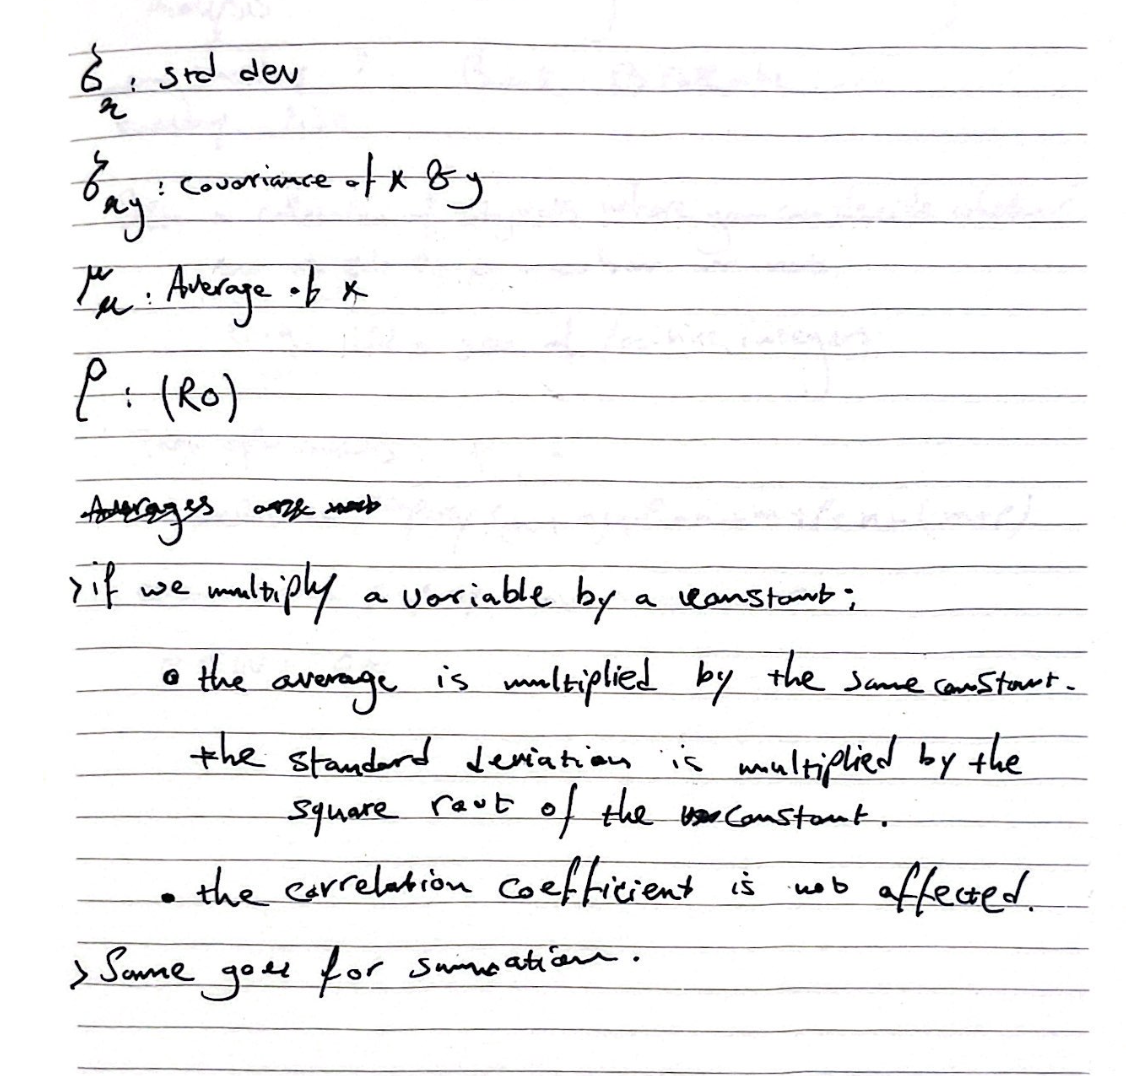 σx : std dev
σxy : covariance of x & y
μx : Average of x
ρ : (Ro)
Averages
> if we multiply a variable by a constant:
• the average is multiplied by the same constant.
the standard deviation is multiplied by the
square root of the constant.
• the correlation coefficient is not affected.
> Same goes for summation.